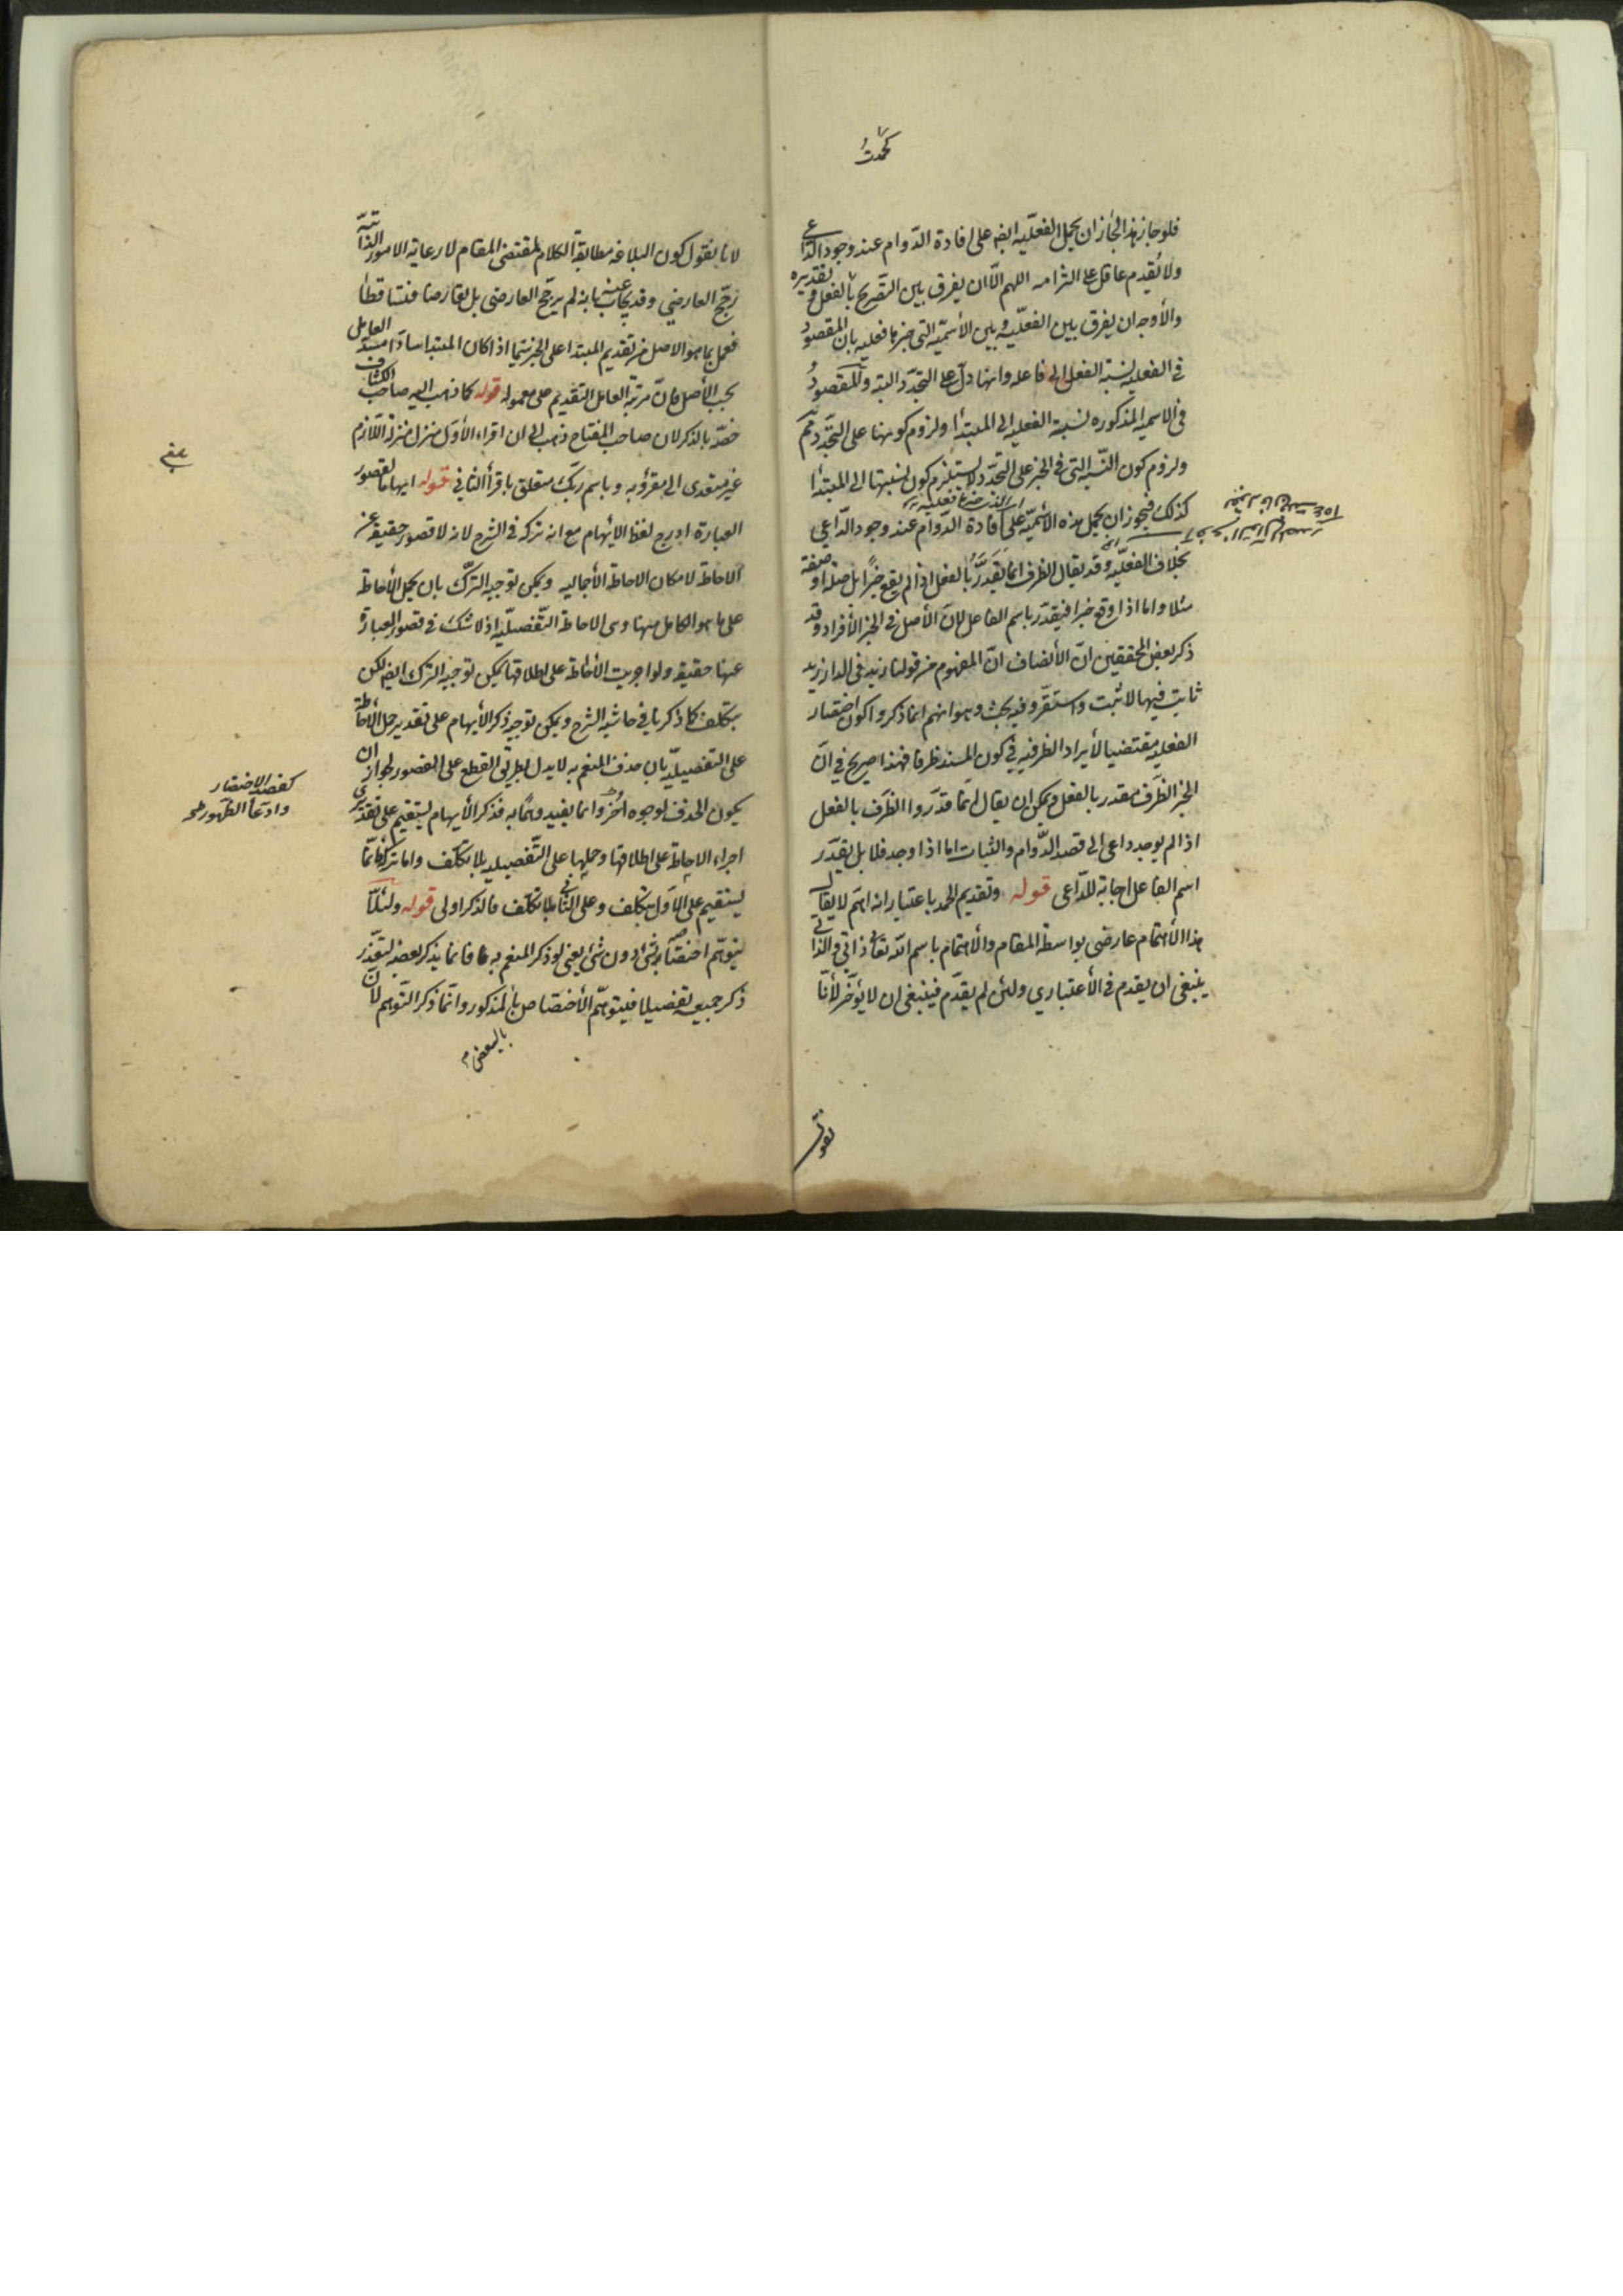 كحمدتُ
فلو جاز هذا لجاز ان يحمل الفعليّه ايضا على افادة الدّوام عند وجود الدّاعى
ولا يُقدم عاقل على التزامه اللهم الّا ان يفرق بين التّصريح بالفعل وتقديره
والأوجه ان يفرق بين الفعليّه وبين الأسميّه التى خبرها فعليه بان المقصود
فى الفعليه نسبة الفعل الى فاعله وانها دلّ على التجدّد البته والمقصودُ
فى الاسميه المذكوره نسبة الفعليه الى المبتدأ ولزوم كونها على التجدّد مم
ولزوم كون النّسبه التى فى الخبر على التجدّد لا يستلزم كون نسبتها الى المبتدأ
كذلك فيجوز ان يحمل هذه الأسميّة على افادة الدّوام عند وجود الدّاعي
بخلاف الفعليّه وقد يقال الظرف انما يقدَّرُ بالفعل اذا لم يقع خبرًا بل صلة او صفة
مثلا واما اذا وقع خبرا فيقدّر باسم الفاعل لانّ الأصل فى الخبر الأفراد وقد
ذكر بعض المحققين انّ الأنصاف انّ المفهوم من قولنا زيد فى الدار زيد
ثابت فيها لا ثبت واستقرّ وفيه بحث وهو انهم انما ذكروا كون اختصار
الفعليه مقتضيا لأيراد الظرفيه فى كون المسند ظرفا فهذا صريح فى انّ
الخبر الظرف مقدر بالفعل ويمكن ان يقال انمّا قدّروا الظرف بالفعل
اذا لم يوجد داعى الى قصد الدّوام والثبات اما اذا وجد فلا بل يقدّر
اسم الفاعل اجابة للدّاعى قوله وتقديم الحمد باعتبار انه اهمّ لا يقال
هذا الأهتمام عارضى بواسطة المقام والأهتمام باسم الله تعالى ذاتى والذاتى
ينبغى ان يقدم فى الأعتباري ولئن لم يقدّم فينبغى ان لا يؤخّر لأنّا
نقول
لانا نقول كون البلاغه مطابقة الكلام لمقتضى المقام لا رعاية الامور الذاتيّة
رجّح العارضي وقد يجاب عنه بانه لم يرجّح العارضى بل تعارضا فتساقطا
فعمل بما هو الاصل من تقديم المبتدا على الخبر سيّما اذا كان المبتدا سادّا مسدّ العامل
بحسب الأصل فانّ مرتبة العامل التقديم على معموله قوله كما ذهب اليه صاحب الكشاف
خصّه بالذكر لان صاحب المفتاح ذهب الى ان اقراء الأوّل منزل منزلة اللّازم
غير متعدى الى مقرؤبه وباسم ربّك متعلق باقرأ الثانى قوله ايهاما لقصور
العبارة ادرج لفظ الأيهام مع انه تركه فى الشرح لانه لا قصور حقيقة عن
الاحاطة لامكان الاحاطة الأجماليه ويمكن توجيه التّرك بان يحمل الأحاطة
على ما هو الكامل منها وهى الاحاطة التّفصيليّه اذ لا شكّ فى قصور العبارة
عنها حقيقة ولو اجريت الأحاطة على اطلاقها يمكن توجيه الترك ايضا لكن
بتكلف كما ذكرنا فى حاشيه الشرح ويمكن توجيه ذكر الأيهام على تقدير حمل الأحاطة
على التفصيليّه بان حذف المنعم به لا يدل بطريق القطع على القصور لجواز ان
يكون الحذف لوجوه اُخر وانما يفيد وهمًا به فذكر الأيهام يستقيم على تقديرى
اجراء الاحاطة على اطلاقها وحملها على التّفصيليه بلا تكلّف واما تركه فانّما
يستقيم على الاوّل بتكلف وعلى الثّانى بلا تكلّف فالذكر اولى قوله ولئلّا
يتوهّم اختصّاصه بشئ دون شئ يعنى لو ذكر المنعم به فانما يذكر بعضه لتعذّر
ذكر جميعه تفصيلا فيتوهّم الأختصّاص بالمذكور وانمّا ذكر التّوهم لانّ
بالبعض م
كقصد الاختصار
وادّعا الظهور